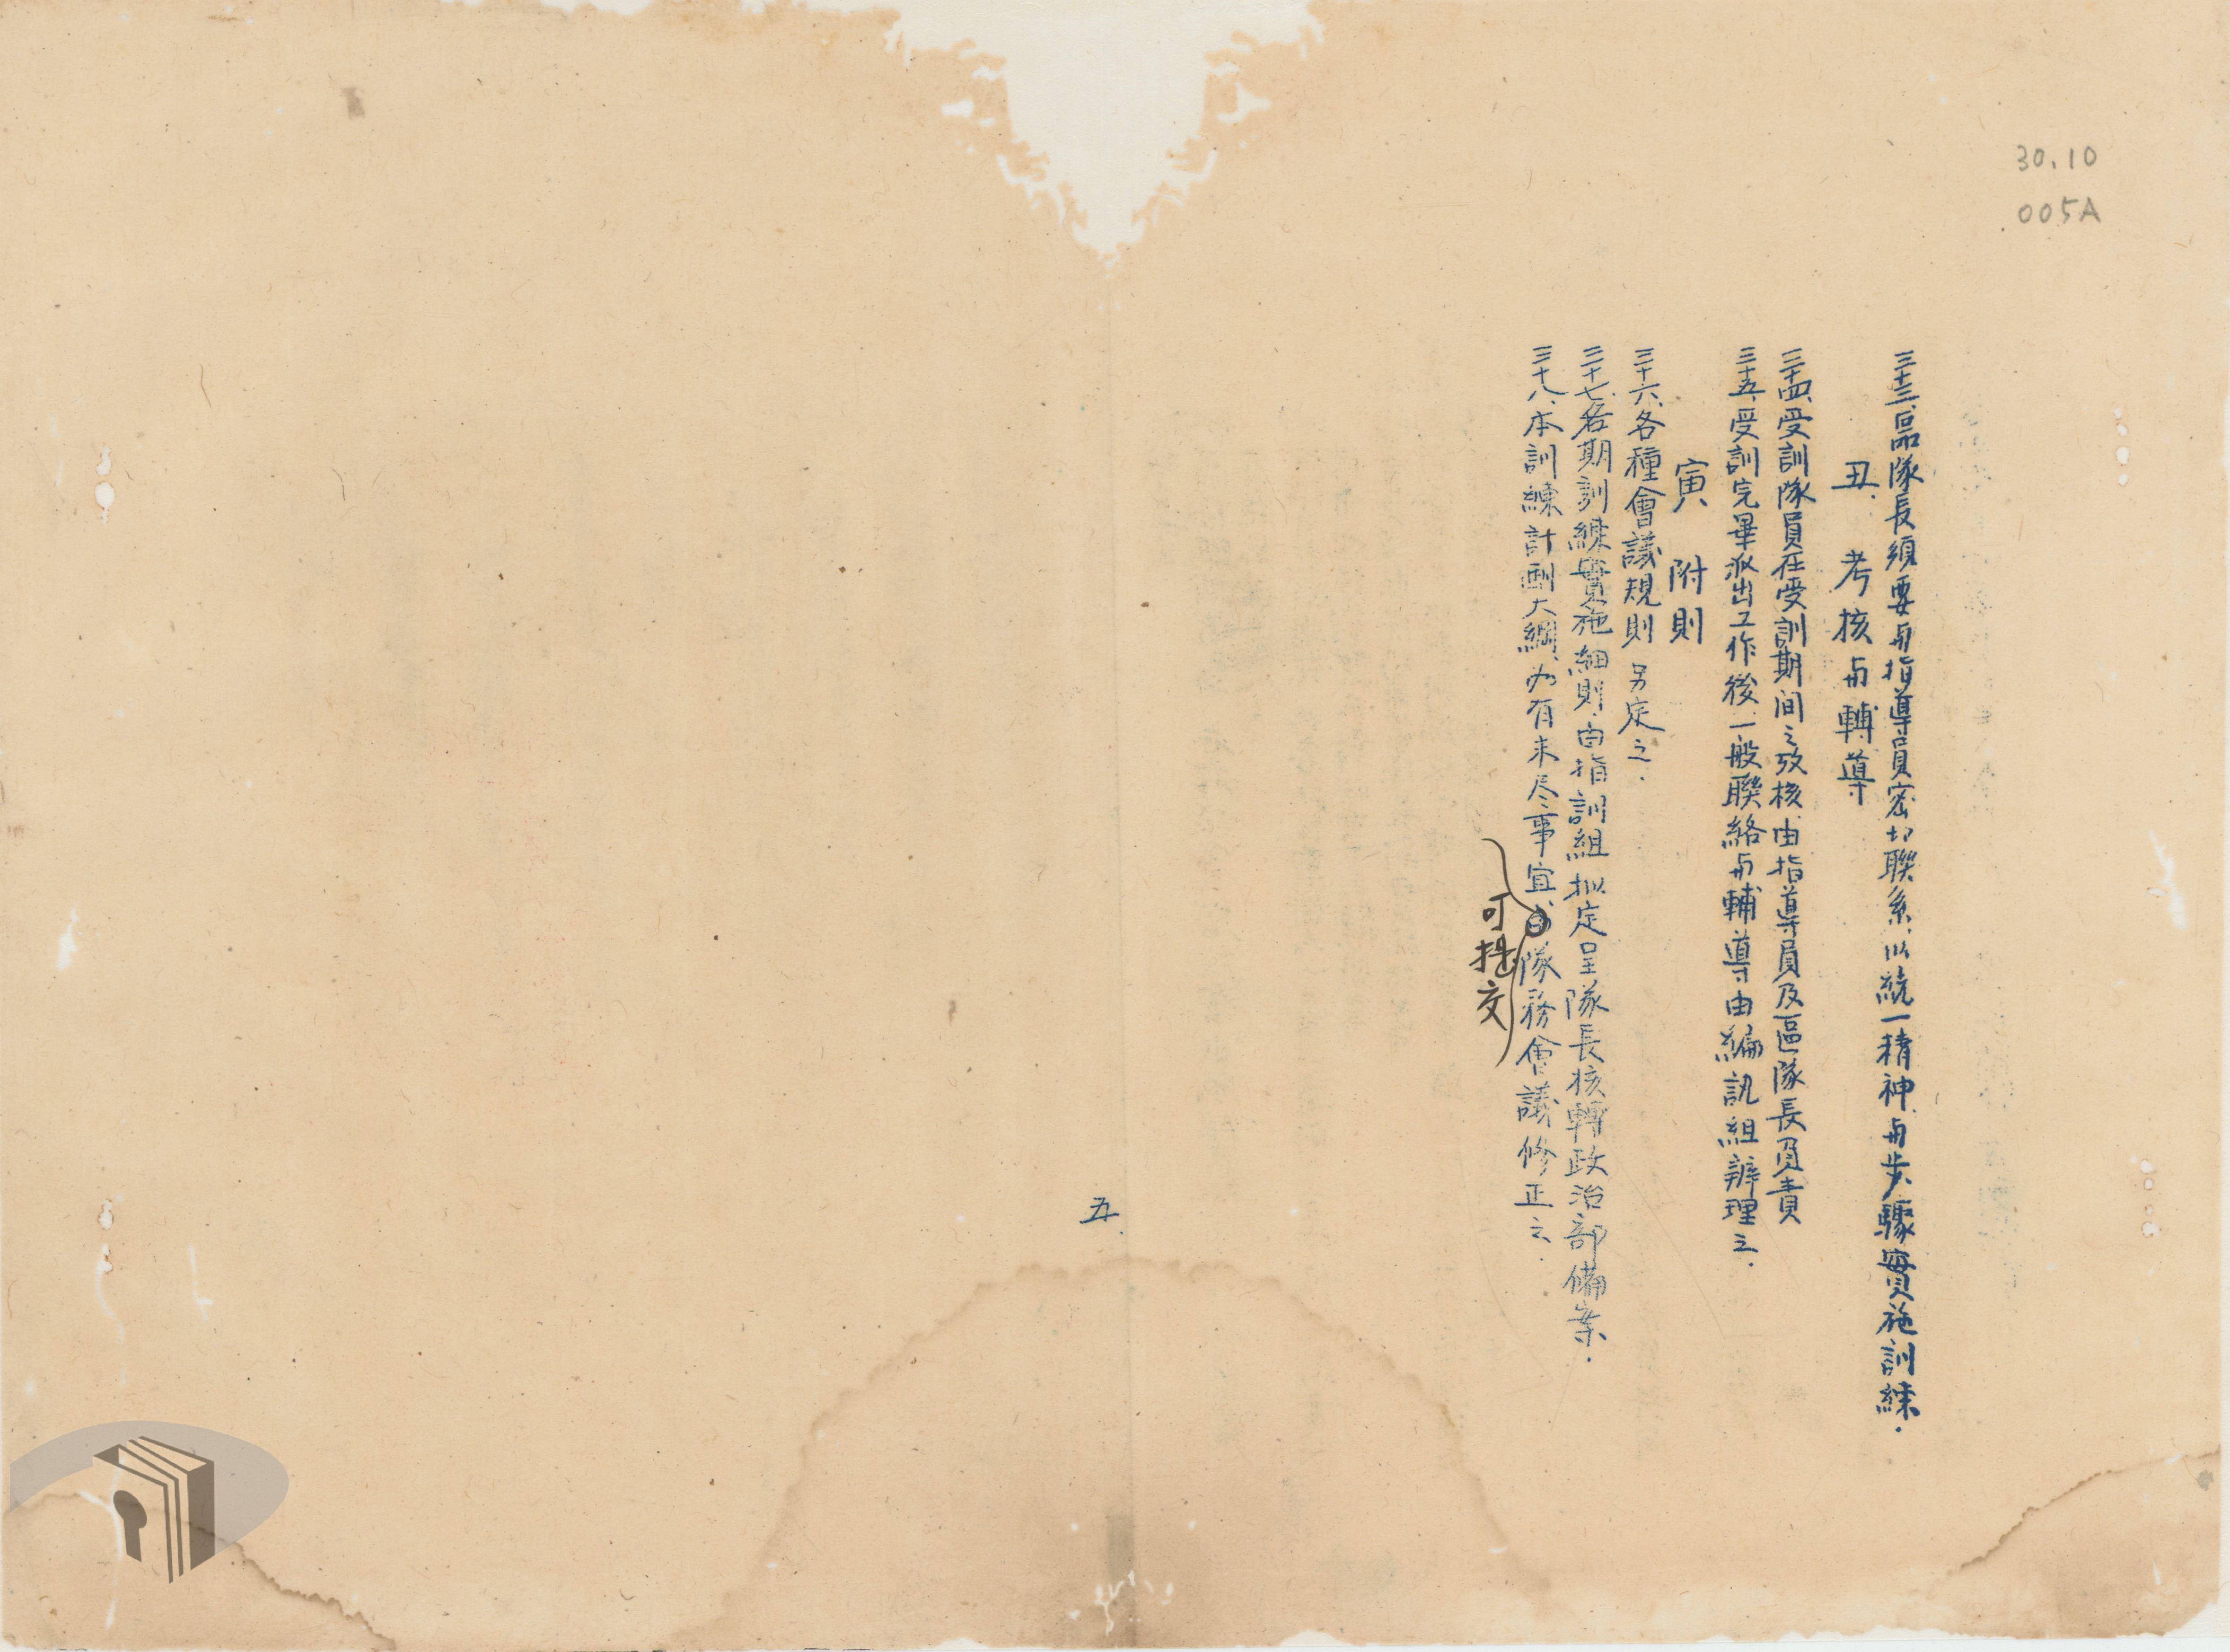 30.10
005A
三十三、區隊長須要与指導員密切聯系、以統一精神与步驟實施訓練.
丑. 考核与輔導
三十四、受訓隊員在受訓期间之攷核、由指導員及區隊長負責
三十五、受訓完畢派出工作後、一般聯絡与輔導由編訊組辦理之.
寅、附則
三十六、各種會議規則另定之.
三十七、各期訓練實施細則、由指訓組拟定呈隊長核轉政治部備案.
三十八、本訓練計劃大綱、如有未尽事宜、隊務會議修正之.
可提交
五.